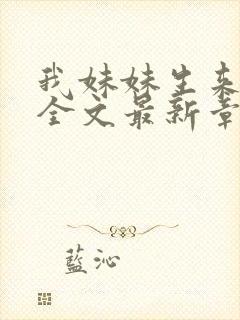 我妹妹生来
全文最新章
藍沁